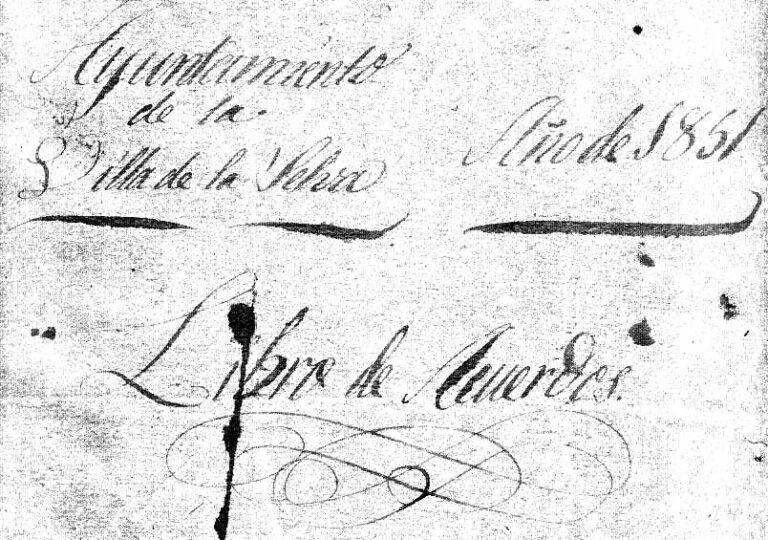 Ayuntamiento
de la
Villa de la Selva
Año de 1851
Libro de Acuerdos.